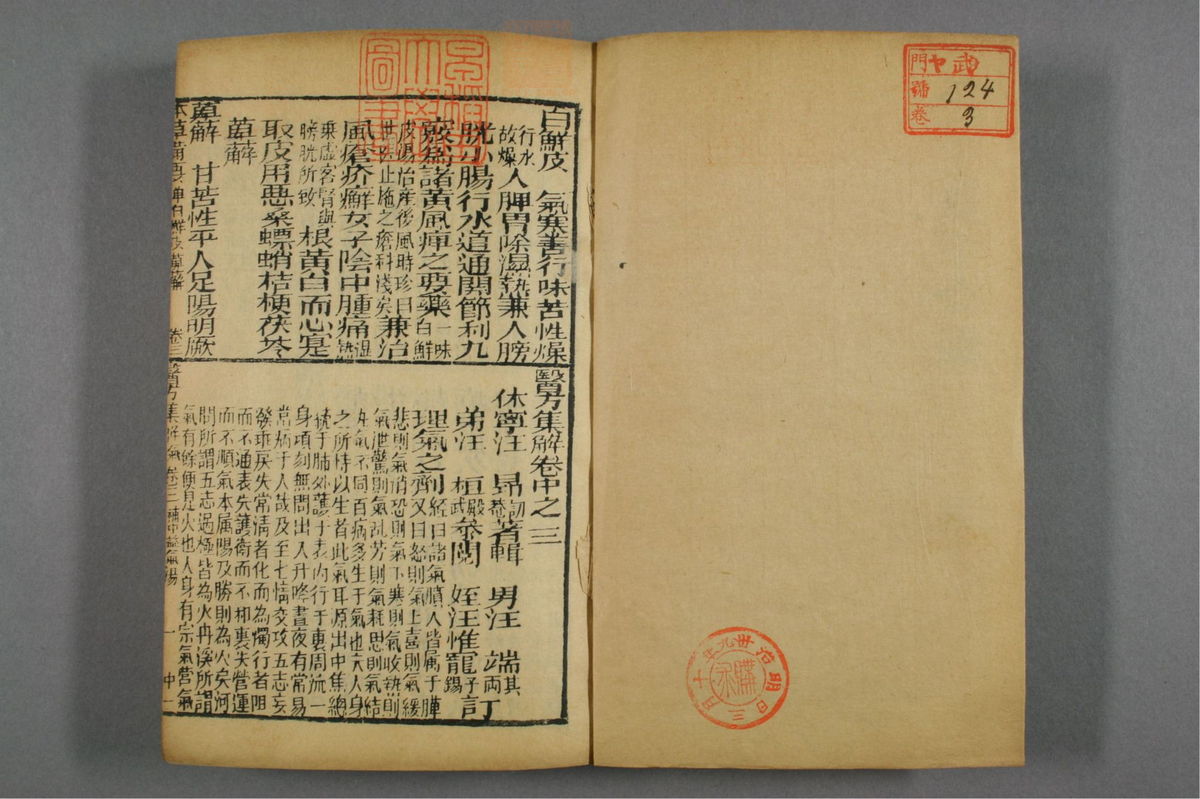 門 ヤ 武
號 124
卷 3
明治卅九年十月三日
購求
白鮮皮 氣寒善行味苦性燥
行水故燥入脾胃除濕熱兼入膀
胱小腸行水道通關節利九
竅為諸黃風痺之要藥一味白鮮
皮湯治産後風時珍曰
世醫止施之瘡科淺矣兼治
風瘡疥癬女子陰中腫痛濕熱
乘虛客腎與膀胱所致根黃白而心寔
取皮用惡桑螵蛸桔梗茯苓
萆薢
萆薢 甘苦性平入足陽明厥
本草備要 白鮮皮 萆薢 卷二
醫方集解卷中之三
休寧汪 昻訒菴著輯 男汪 端其両
弟汪 桓殿武叅閱 姪汪惟寵予錫訂
理氣之劑經曰諸氣膹人皆属于肺
之齊又曰怒則氣上喜則氣緩
悲則氣消恐則氣下寒則氣收熱則
氣泄驚則氣乱勞則氣耗思則氣結
九氣不同百病多生于氣也夫人身
之所恃以生者此氣耳源出中焦總
統于肺外護于表内行于裏周流一
身頃刻無間出入升降晝夜有常易
常病于人哉及至七情交攻五志妄
發乖戾失常淸者化而為濁行者阻
而不通表失護衛而不和裏失營運
而不順氣本属陽及勝則為火矣河
間所謂五志過極皆為火丹溪所謂
氣有餘便是火也人身有宗氣營氣
醫方集解 氣 卷三 補中益氣湯 一 中一